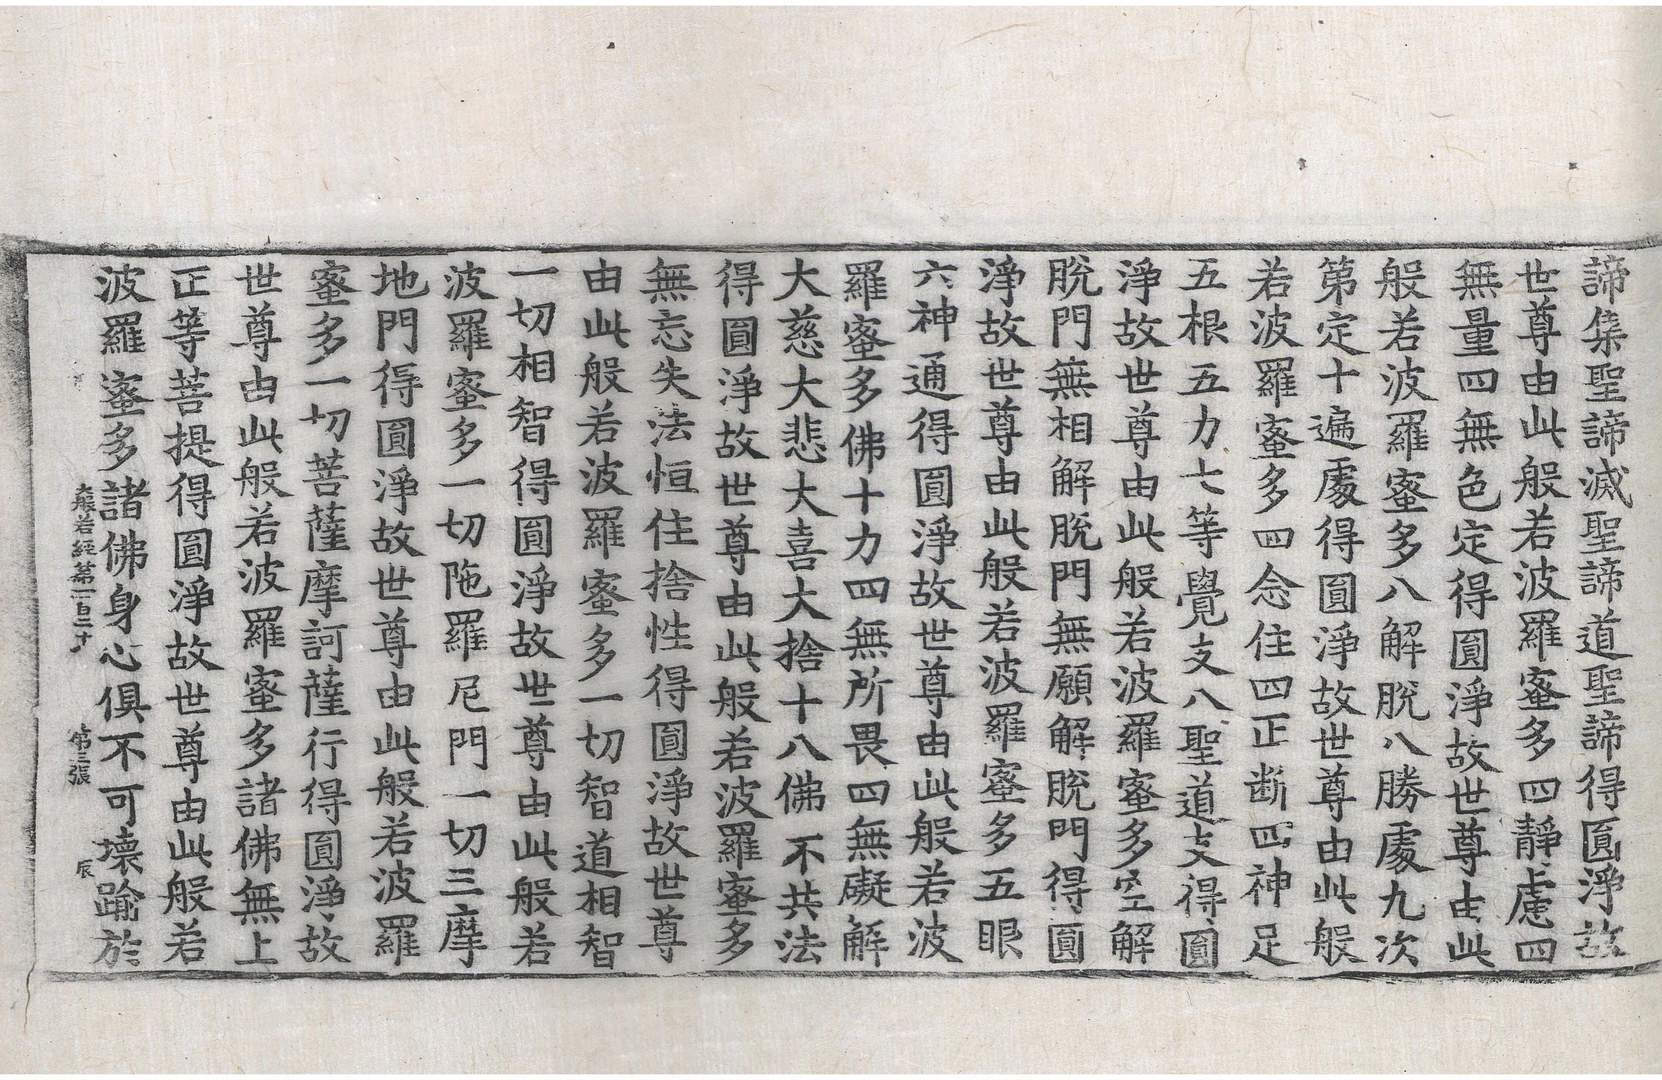 諦集聖諦滅聖諦道聖諦得圓淨故
世尊由此般若波羅蜜多四靜慮四
無量四無色定得圓淨故世尊由此
般若波羅蜜多八解脫八勝處九次
第定十遍處得圓淨故世尊由此般
若波羅蜜多四念住四正斷四神足
五根五力七等覺支八聖道支得圓
淨故世尊由此般若波羅蜜多空解
脫門無相解脫門無願解脫門得圓
淨故世尊由此般若波羅蜜多五眼
六神通得圓淨故世尊由此般若波
羅蜜多佛十力四無所畏四無礙解
大慈大悲大喜大捨十八佛不共法
得圓淨故世尊由此般若波羅蜜多
無忘失法恒住捨性得圓淨故世尊
由此般若波羅蜜多一切智道相智
一切相智得圓淨故世尊由此般若
波羅蜜多一切陁羅尼門一切三摩
地門得圓淨故世尊由此般若波羅
蜜多一切菩薩摩訶薩行得圓淨故
世尊由此般若波羅蜜多諸佛無上
正等菩提得圓淨故世尊由此般若
波羅蜜多諸佛身心俱不可壞踰於
大般若經第一百三十 第三張 辰